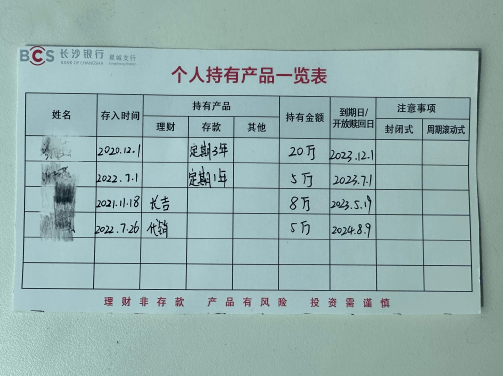 BCS 长沙银行 星城支行
BANK OF CHANGSHA
个人持有产品一览表
姓名 存入时间 持有产品 持有金额 到期日/开放赎回日 注意事项
理财 存款 其他 封闭式 周期滚动式
2020.12.1 定期3年 20万 2023.12.1
2022.7.1 定期1年 5万 2023.7.1
2021.11.18 长吉 8万 2023.5.19
2022.7.26 代销 5万 2024.8.9
理财非存款 产品有风险 投资需谨慎